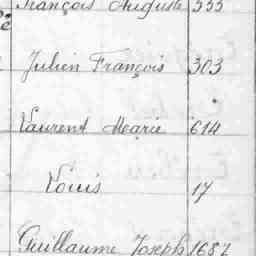 François Auguste 333
Julien François 303
Laurent Marie 614
Louis 17
Guillaume Joseph 1687